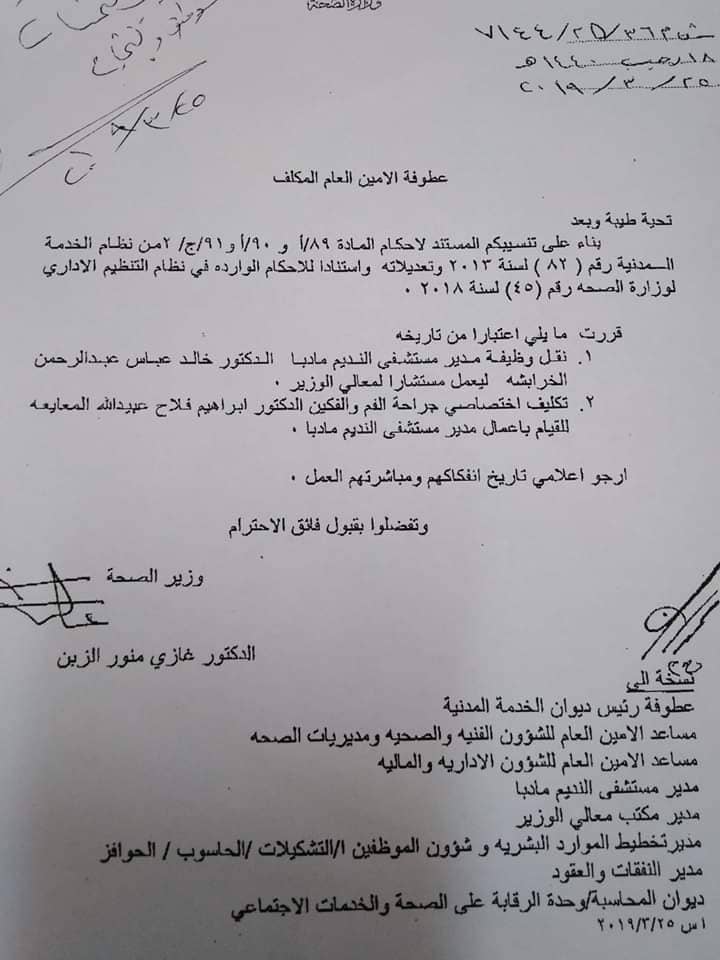 وزارة الصحة
ش م ٣٦/٢٥/٧١٤٤
١٨ رجب ١٤٤٠هـ
٢٠١٩/٣/٢٥
عطوفة الامين العام المكلف
تحية طيبة وبعد
بناء على تنسيبكم المستند لاحكام المادة ٨٩/أ و ٩٠/أ و٩١/ج/٢من نظام الخدمة
المدنية رقم ( ٨٢ ) لسنة ٢٠١٣ وتعديلاته واستنادا للاحكام الوارده في نظام التنظيم الاداري
لوزارة الصحه رقم (٤٥) لسنة ٢٠١٨ .
قررت ما يلي اعتبارا من تاريخه
١. نقل وظيفة مدير مستشفى النديم مادبا الدكتور خالد عباس عبدالرحمن
الخرابشه ليعمل مستشارا لمعالي الوزير .
٢. تكليف اختصاصي جراحة الفم والفكين الدكتور ابراهيم فلاح عبيدالله المعايعه
للقيام باعمال مدير مستشفى النديم مادبا .
ارجو اعلامي تاريخ انفكاكهم ومباشرتهم العمل .
وتفضلوا بقبول فائق الاحترام
وزير الصحة
الدكتور غازي منور الزبن
نسخة الى
عطوفة رئيس ديوان الخدمة المدنية
مساعد الامين العام للشؤون الفنيه والصحيه ومديريات الصحه
مساعد الامين العام للشؤون الاداريه والماليه
مدير مستشفى النديم مادبا
مدير مكتب معالي الوزير
مديرتخطيط الموارد البشريه و شؤون الموظفين ا/التشكيلات /الحاسوب / الحوافز
مدير النفقات والعقود
ديوان المحاسبة/وحدة الرقابة على الصحة والخدمات الاجتماعي
ا س ٢٠١٩/٣/٢٥